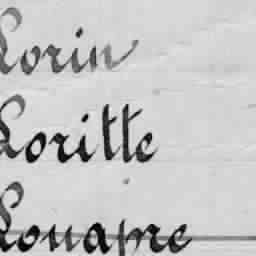 Lorin
Loritte
Louapre